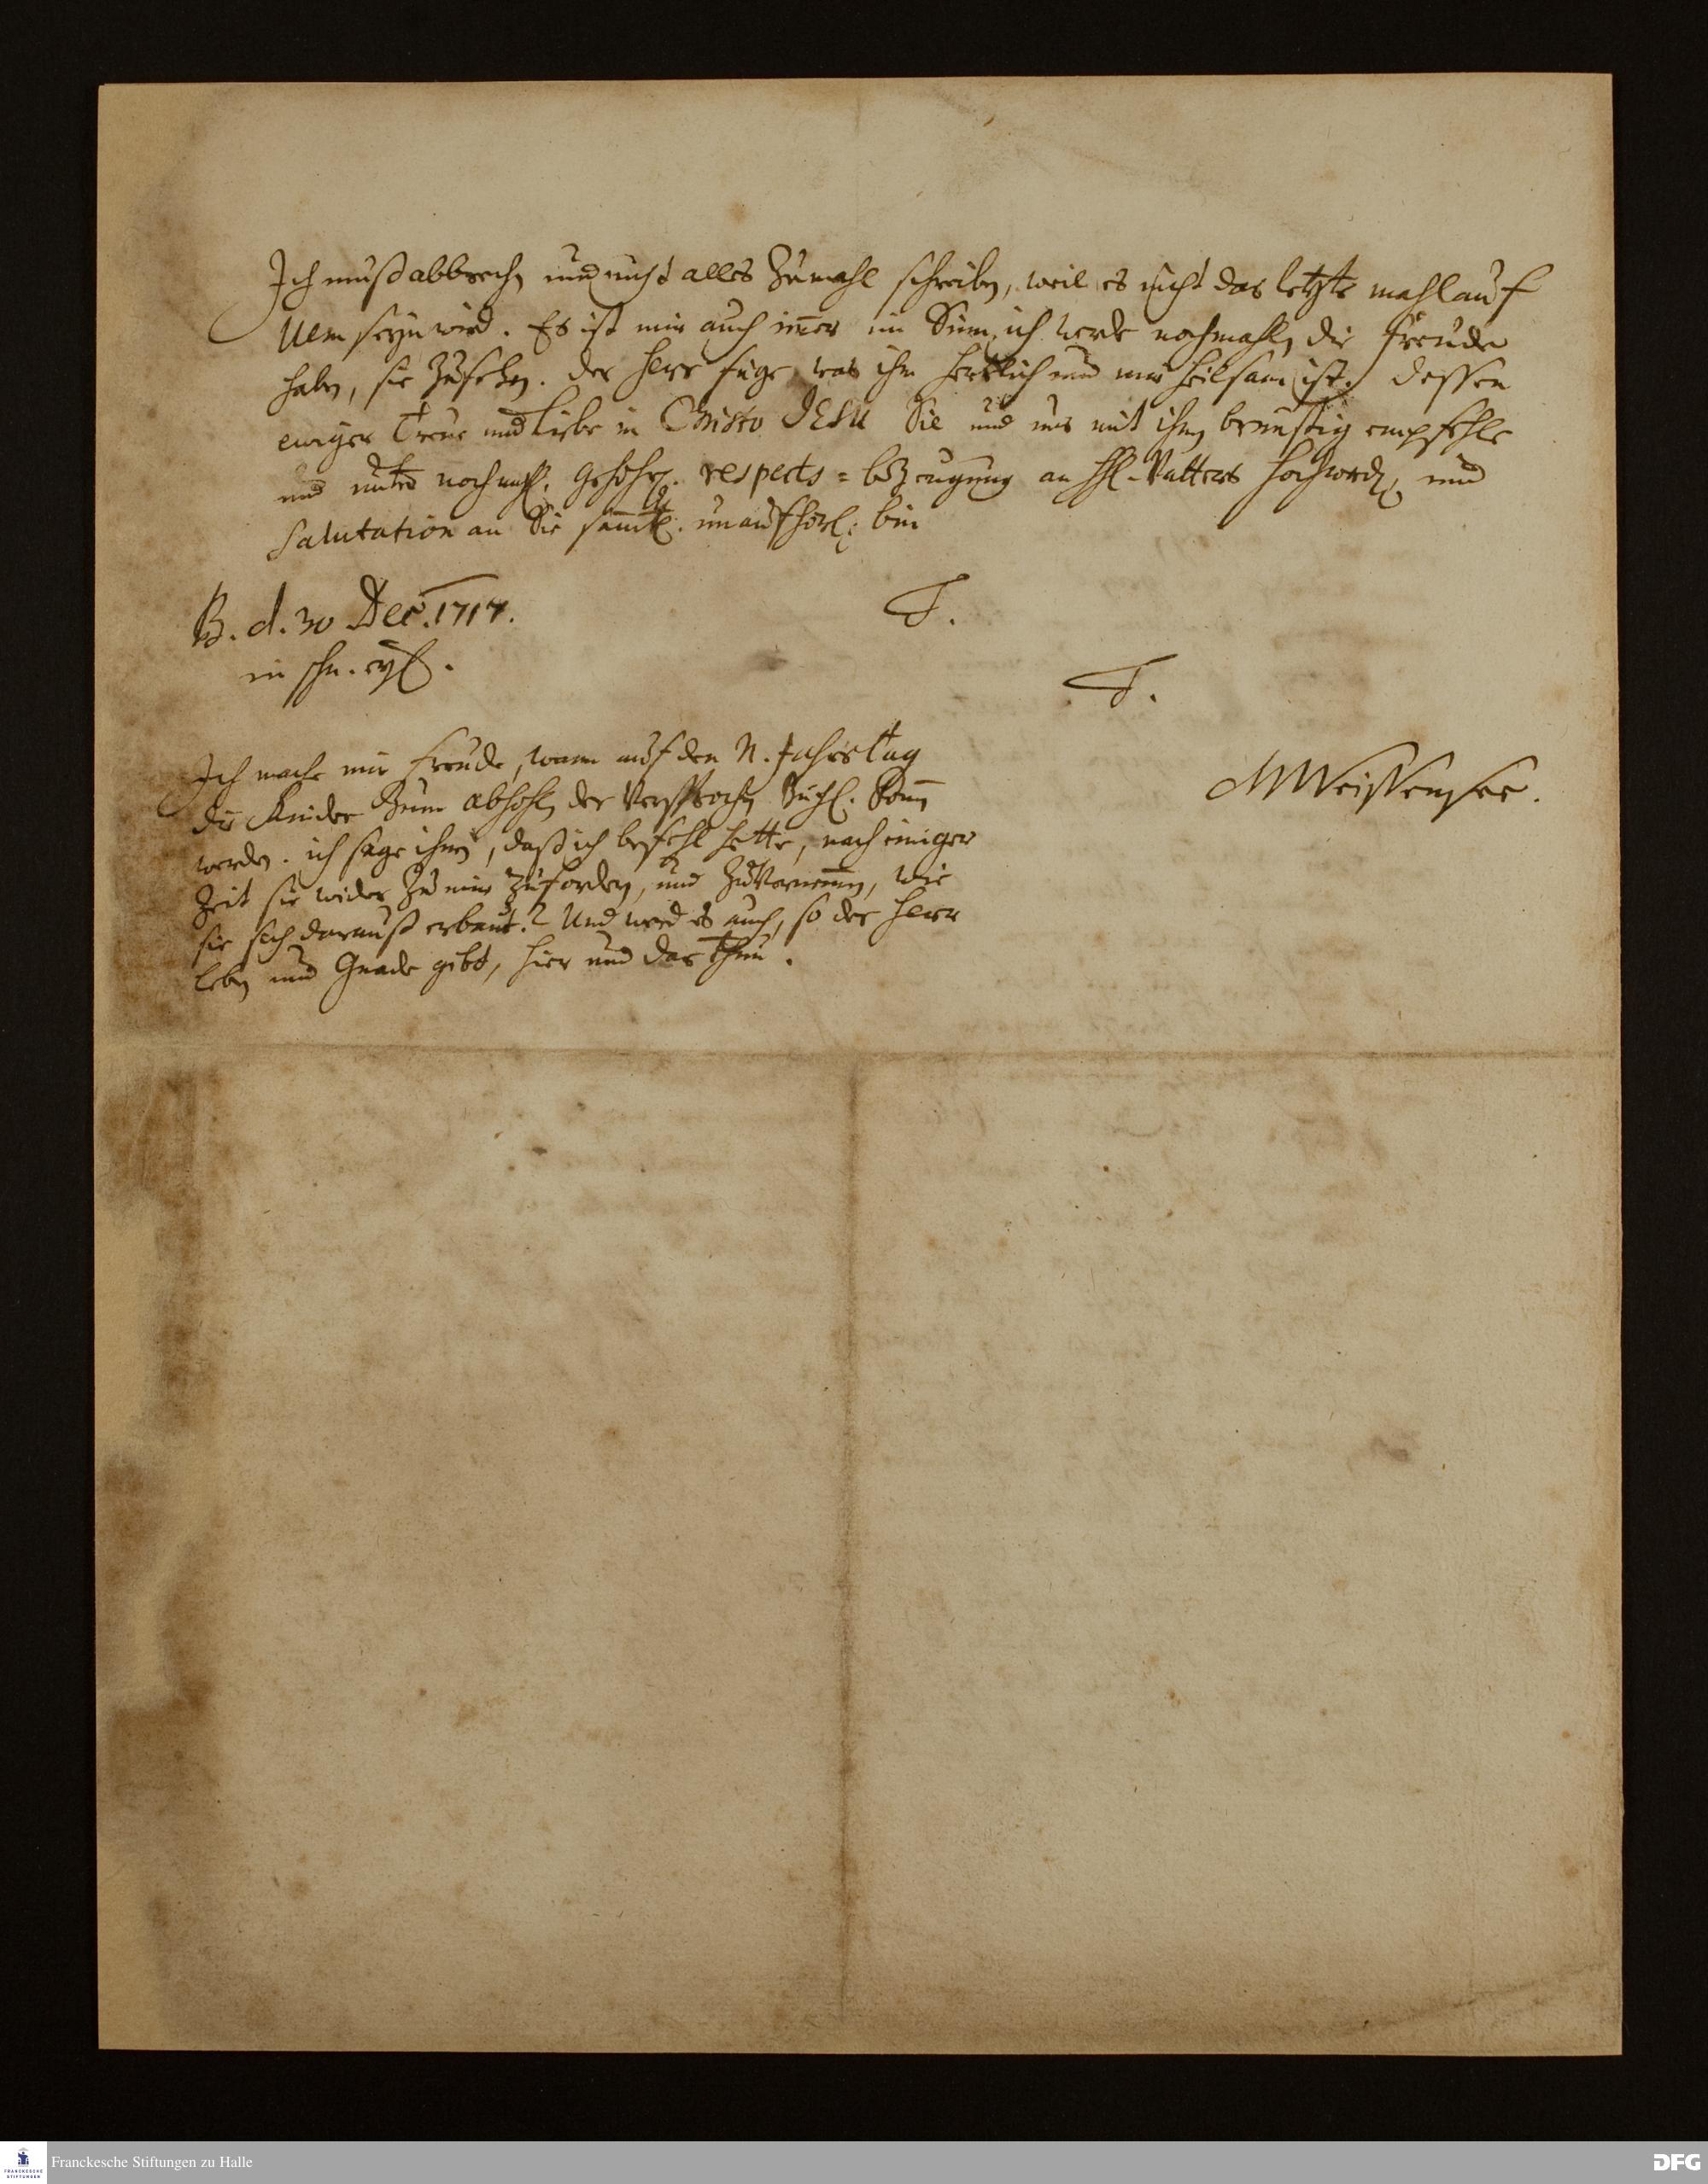 Ich muß abbrechen und nicht alles zumahl schreiben, weil es nicht das letzte mahl auf
Ulm seyn wird. Es ist mir auch im̄er im Sinn, ich werde nochmahlen die Freude
haben, sie zusehen. der Herr füge, was ihm herrlich und mir heilsam ist. dessen
ewiger Treue und Liebe in Christo JESU Sie und uns mit ihnen brünstig empfehle
und unter nochmahl. gehors. respects = bezeugung an HH. Vatters Hochwürd. und
Salutation an Sie sämtl. unaufhörl. bin
B. d. 30 Dec. 1717.
T.
in schn. eyl.
T.
Ich mache mir Freude, wann auf den N. Jahrs tag
MWeissensee.
die Kinder zum abhohlen der Versprochen Büchl. kom̄en
werden. ich sage ihnen, daß ich befehl hette, nach einiger
Zeit sie wider zu mir zufordern, und zuvernem̄en, wie
sie sich darauß erbaut? Und werd es auch, so der Herr
leben und Gnade gibt, hier und dar thun.
Franckesche Stiftungen zu Halle
FRANCKESCHE
STIFTUNGEN
DFG